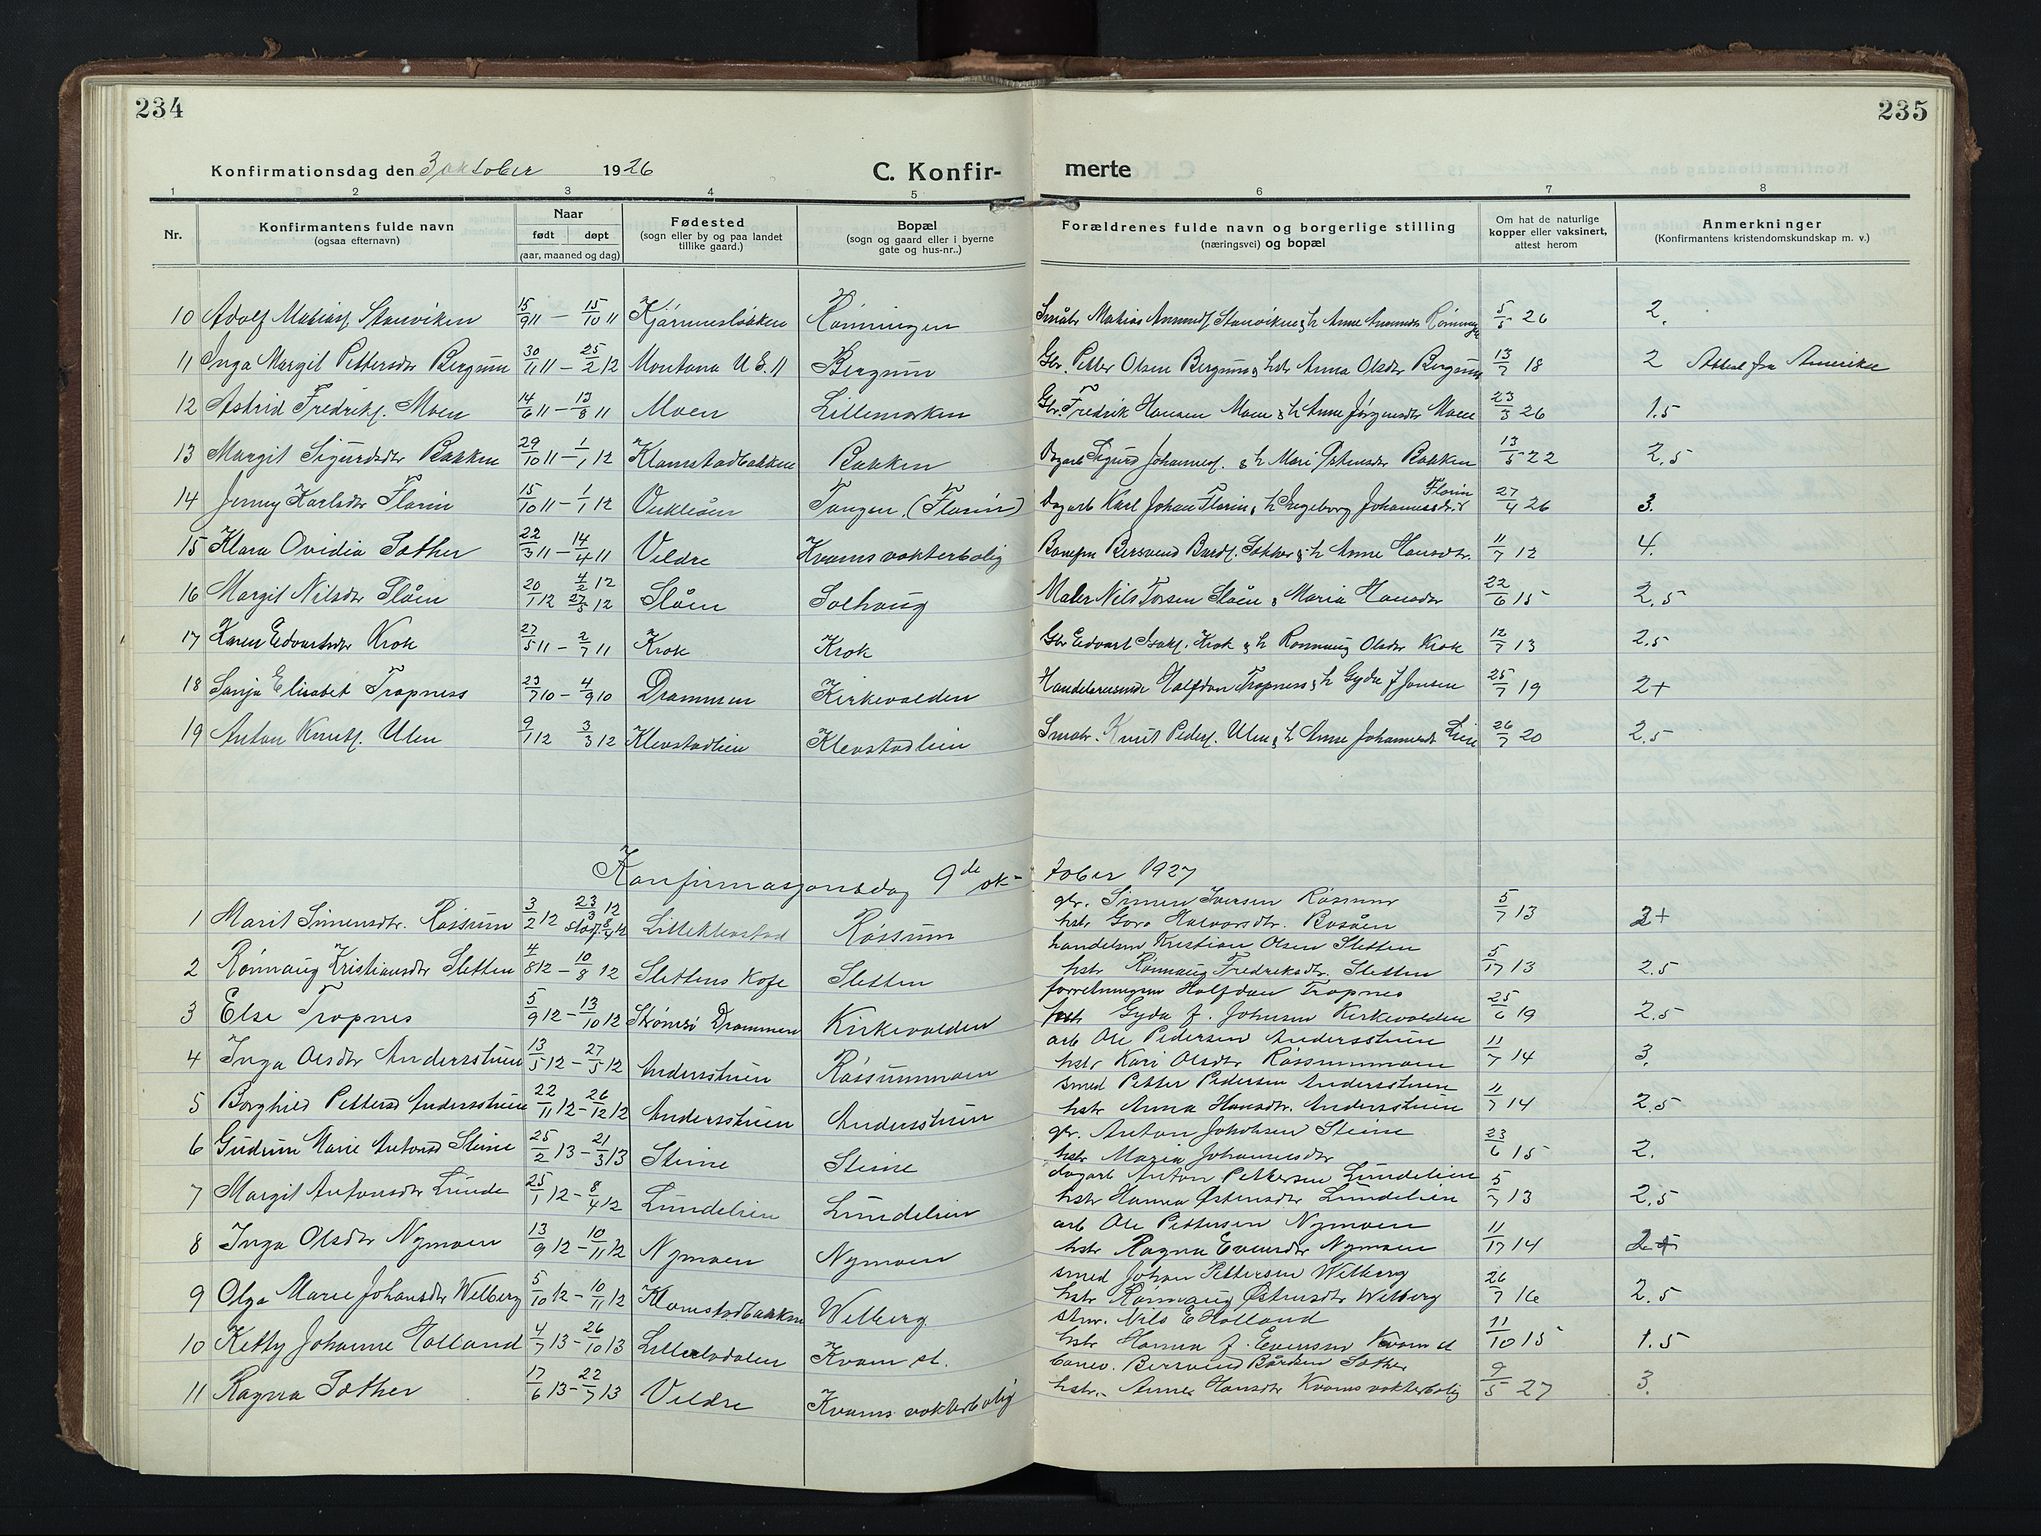 234
235
Konfirmationsdag den 3 oktober 1926
C. Konfir-
merte
1 2 3 4 5 6 7 8
Nr.
Konfirmantens fulde navn
(ogsaa efternavn)
Naar
født døpt
(aar, maaned og dag)
Fødested
(sogn eller by og paa landet
tillike gaard.)
Bopæl
(sogn og gaard eller i byerne
gate og hus-nr..)
Forældrenes fulde navn og borgerlige stilling
(næringsvei) og bopæl
Om hat de naturlige
kopper eller vaksinert,
attest herom
Anmerkninger
(Konfirmantens kristendomskundskap m. v.)
10 Adolf Matias. Stenviken 15/9 11 – 15/10 11 Rønningen 5/5 26 2.
11 Inga Margit Pettersdtr Bergum 30/11 11 – 25/2 12 Montana U S. A Bergum Gbr. Petter Olsen Bergum & hstr Anna Olsdtr Bergum 13/7 18 2 Attest fra Amerika
12 Astrid Fredrikf. Moen 14/6 11 – 13/8 11 Moen Lillemarken Gbr. Fredrik Hansen Moen & h Anne Jørgensdtr Moen 23/3 26 1.5
13 Margit Sigurdsdtr Bakken 29/10 11 – 1/1 12 Klomstadbakken Bakken Dagarb Sigurd Johannesf. & h Mari Østensdtr Bakken 13/5 22 2.5
14 Jenny Karlsdtr Florin 15/10 11 – 1/1 12 Tangen (Florin) Dagarb Karl Johan Florin & h Ingeborg Johannesdtr Florin 27/4 26 3.
15 Klara Ovidia Sæther 22/3 11 – 14/4 11 Veldre Kvams vokterbolig Banefm Bersvend Bardf. Sæther & h Anne Hansdtr. 11/7 12 4.
16 Margit Nilsdtr Slåen 20/1 12 4/2 12 27/5 12 Slåen Solhaug Maler Nils Torsen Slåen & Maria Hansdtr 22/6 15 2.5
17 Karen Edvartsdtr Krok 27/5 11 – 2/7 11 Krok Krok Gbr Edvart Isakf. Krok & h Rønnaug Olsdtr Krok 12/7 13 2.5
18 Sonja Elisabet Tropness 23/7 10 – 4/9 10 Drammen Kirkevolden Handelsreisende Halfdan Tropness & h Gyda J Jonsen 25/7 19 2+
19 Anton Knutf. Ulen 9/1 12 3/3 12 Klevstadlien Klevstadlien Småbr. Knut Pedersf. Ulen & h Anne Johannesdt Lien 26/7 20 2.5
Konfirmasjonsdag 9de ok-
tober 1927
1 Marit Simensdtr. Røssum 3/2 12 23/3 12 stadf 8/4 12 Lilleklevstad Røssum gbr. Simen Iversen Røssum
hstr Goro Halvorsdtr. Bosåen 5/7 13 2+
2 Rønnaug Kristiansdtr Sletten 4/8 12 – 10/8 12 Slettens Kafe Sletten handelsm Kristian Olsen Sletten
hstr Rønnaug Fredriksdtr. Sletten 5/17 13 2.5
3 Else Tropnes 5/9 12 – 13/10 12 Strømsø Drammen Kirkevolden forretningsm Halfdan Tropnes
hstr Gyda J. Johnsen Kirkevolden 25/6 19 2.5
4 Inga Olsdtr Andersstuen 13/5 12 – 27/5 12 Andersstuen Røssummoen arb Ole Pedersen Andersstuen
hstr Kari Olsdtr Røssummoen 11/7 14 3.
5 Borghild Pettersd Andersstuen 22/11 12 – 26/12 12 Andersstuen Andersstuen smed Petter Pedersen Andersstuen
hstr Anna Hansdtr. Andersstuen 11/7 14 2.5
6 Gudrun Marie Antonsd Steine 25/2 13 – 21/3 13 Steine Steine gbr. Anton Jakobsen Steine
hstr Maria Johannesdtr 23/6 15 2.
7 Margit Antonsdtr Lunde 25/1 12 – 8/4 12 Lundelien Lundelien dagarb Anton Pettersen Lundelien
hstr Hanna Østensdtr Lundelien 5/7 13 2.5
8 Inga Olsdtr Nymoen 13/9 12 – 10/11 12 Nymoen Nymoen arb Ole Pettersen Nymoen
hstr Ragna Evensdtr Nymoen 11/17 14
9 Olga Marie Johansdtr Welberg 5/10 12 – 10/11 12 Klomstadbakken Welberg smed Johan Pettersen Welberg
hstr Rønnaug Østensdtr Welberg 26/7 16 2.5
10 Ketty Johanne Holland 4/7 13 – 26/10 13 Kvam st. Nils E Holland
hstr Hanna J. Evensen Kvam st 11/10 15 1.5
11 Ragna Sæther 17/6 13 – 22/7 13 Veldre Kvams vokterbolig banev. Bersvend Bårdsen Sæther
hstr. Anne Hansdtr Kvams vokterbolig 9/5 27 3.